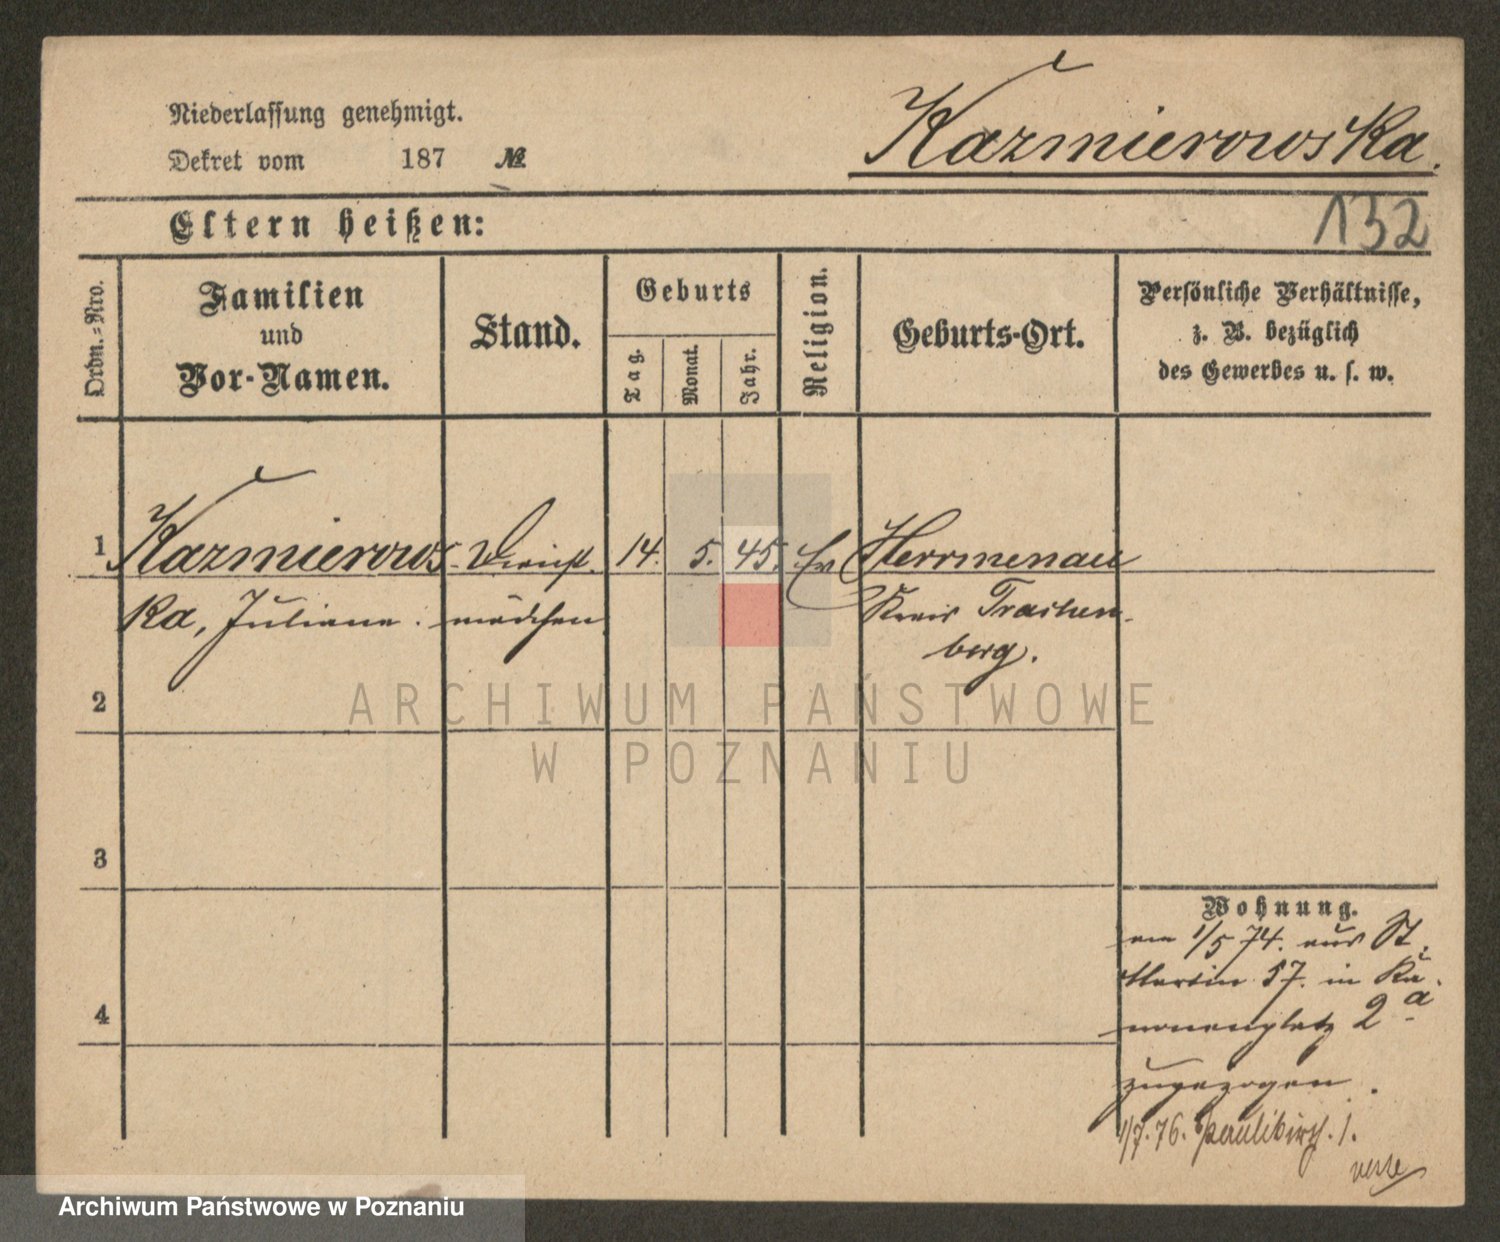 Niederlassung genehmigt.
Dekret vom 187 №
Kazmierowska.
Eltern heißen:
132
Ordn.-Nro.
Familien
und
Vor-Namen.
Stand.
Geburts
Tag.
Monat.
Jahr.
Religion.
Geburts-Ort.
Persönliche Verhältnisse,
z. B. bezüglich
des Gewerbes u. s. w.
1 Kazmierows- Dienst- 14. 5. 45. Ev Herrmenau
ka, Juliane. mädchen Kreis Trachen-
berg.
2
3
4
Wohnung.
am 1/5 74. aus St.
Martin 57. in Ka-
nonenplatz 2a
zugezogen.
1/7. 76. Paulikirch. 1.
ARCHIWUM PAŃSTWOWE
W POZNANIU
Archiwum Państwowe w Poznaniu